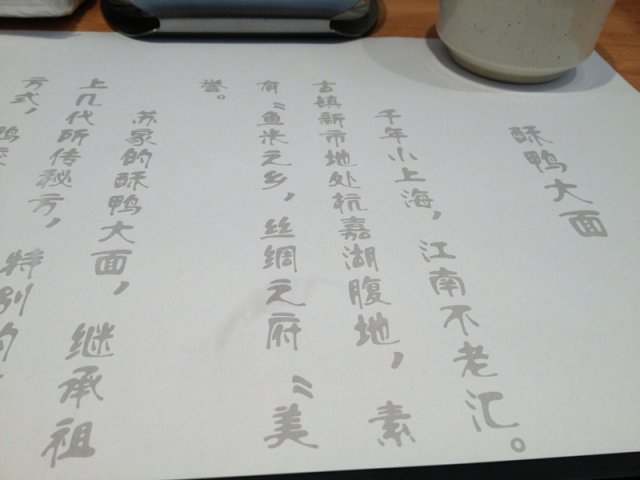 酥鸭大面
千年小上海，江南不老汇。
古镇新市地处杭嘉湖腹地，素
有“鱼米之乡，丝绸之府”美
誉。
苏家的酥鸭大面，继承祖
上几代所传秘方，特别的
方式，鸭